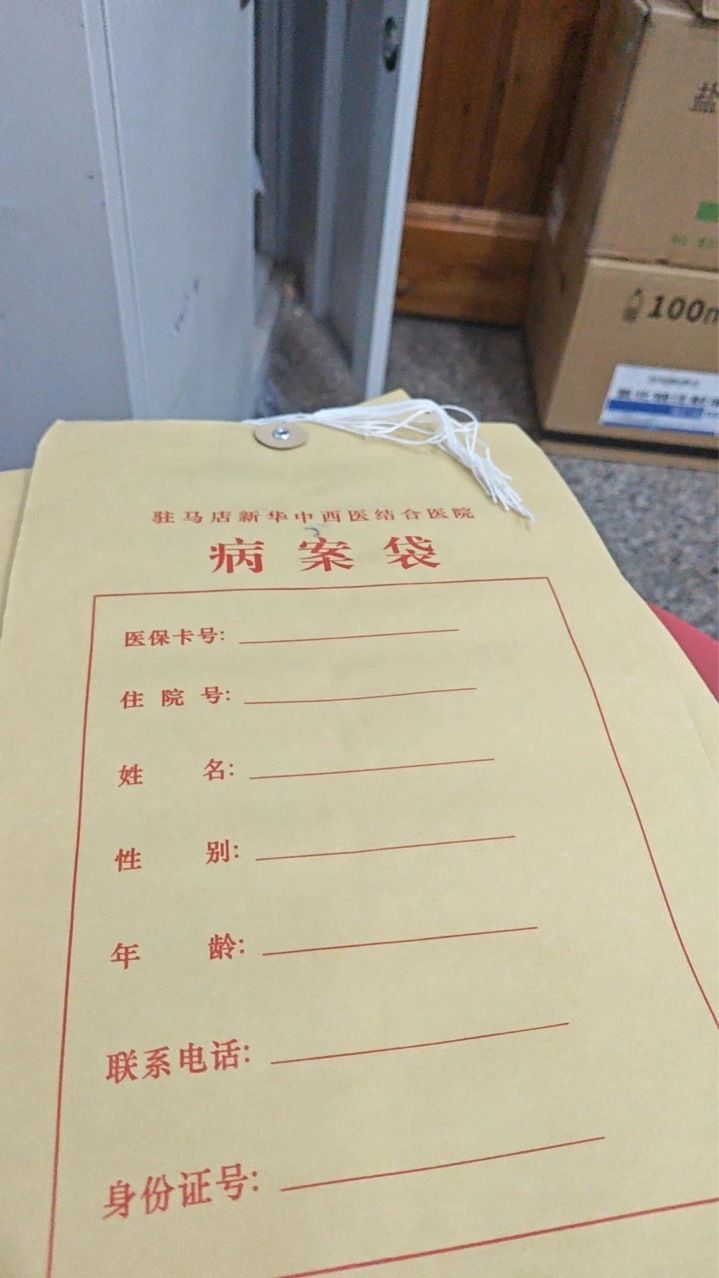 盐
100m
驻马店新华中西医结合医院
病案袋
医保卡号:
住院号:
姓名:
性别:
年龄:
联系电话:
身份证号: